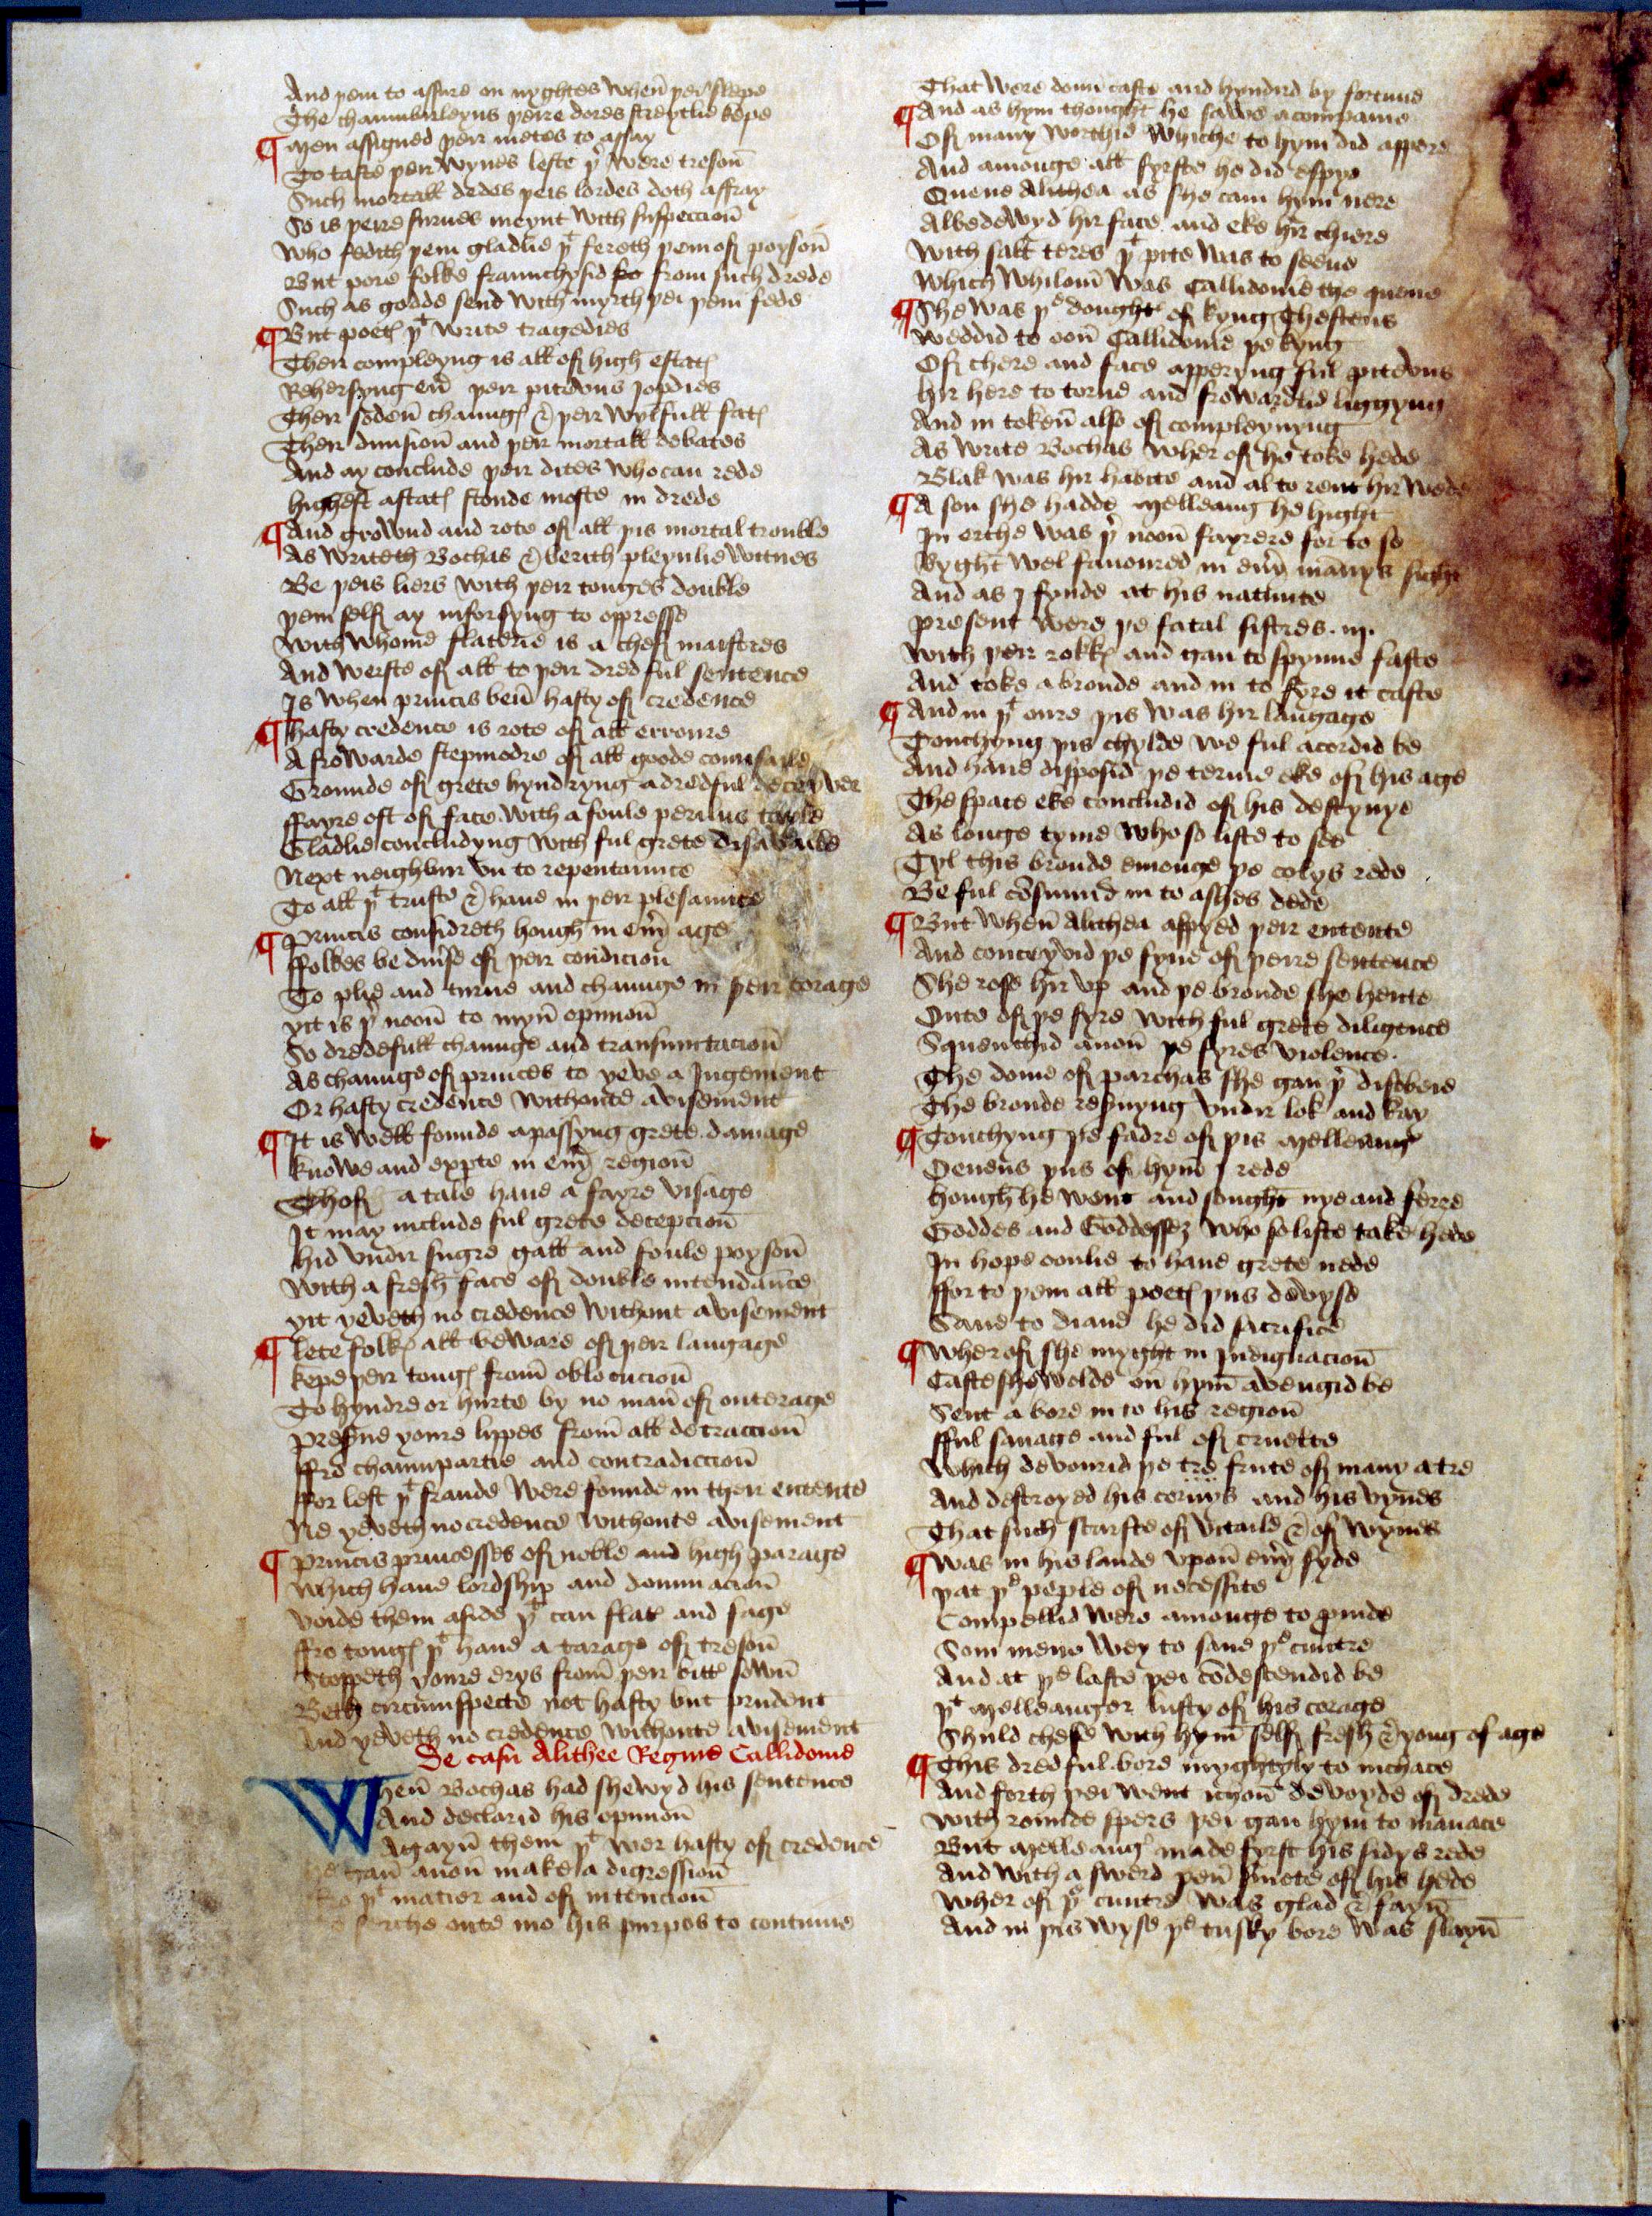 And þem to assure on nyghtes wheñ þei slepe
The chaumbirleyns þeire dores streytlie kepe
¶ Men assigned þeir metes to assay
To taste þeir wynes leste þ̉ were tresoñ
Such mortall dedes þeis lordes doth affray
So is þeire surnes meynt with suspeccioñ
Who fedith þem gladlie þͭ fereth þem of poysoñ
But pore folke fraunchysid from such drede
Such as godde send with myrth þei þem fede
¶ But poetꝭ þͭ write tragedies
Their compleyng is all of high estatꝭ
Rehersyng eũ þeir pitedous jopdies
Their sodeñ chaungꝭ & þeir wylfull fatꝭ
Their diuisioñ and þeir mortall debates
And ay conclude þeir dites who can rede
Highest astatꝭ stonde moste in drede
¶ And grownd and rote of all þis mortal trouble
As writeth Bochas & berith pleynlie witnes
Be þeis liers with þeir tonges double
þem self ay inforsyng to oppresse
With whome flaterie is a chef maistres
And werste of all to þeir dredful sentence
Is when princis beñ hasty of credence
¶ Hasty credence is rote of all erroure
A frowarde stepmodre of all goode counsaile
Grounde of grete hyndryng a dredful deceyver
ffayre oft of face with a foule perilus tayle
Gladlie concludyng with ful grete disavaile
Next neighbur vn to repentaunce
To all þͭ truste & haue in þeir plesaunce
¶ Princis considreth hough in eũy age
ffolkes be diũse of þeir condicioñ
To plie and turne and chaunge in þeir corage
yit is þ̉ nooñ to myñ opinioñ
So dredefull chaunge and transmutacioñ
As chaunge of princes to yeve a Jugement
Or hasty credence withoute avisement
¶ It is well founde a passyng grete damage
knowe and expte in eũy regioñ
Thof a tale haue a fayre visage
It may include ful grete decepcioñ
Hid vndir sugre gall and foule poysoñ
With a fresh face of double intendaunce
yit yeveth no credence without avisement
¶ lete folkꝭ all beware of þeir langage
kepe þeir tongꝭ from oblocucioñ
To hyndre or hurte by no mañ of outerage
Preserue youre lyppes from all detraccioñ
ffro chaumpartie and contradiccioñ
ffor lest þͭ fraude were founde in their entente
Ne yeveth no credence withoute avisement
¶ Princis princesses of noble and high parage
Which haue lordship and dominacioñ
Voide them aside þͭ can flatꝭ and fage
ffro tongꝭ þͭ haue a tarage of tresoñ
Stoppeth youre erys from þeir bittꝭ sowñ
Beth circumspecte not hasty but prudent
And yeveth no credence withoute avisement
De casu Alithee Regine Callidonie
Wheñ Bochas had shewyd his sentence
And declarid his opinioñ
Agayñ them þͭ wer hasty of credence
he gañ anoñ make a digressioñ
fro þͭ matier and of intencioñ
To serche oute mo his purpos to continue
That were doun caste and hyndrid by fortune
¶ And as hym thought he sawe a companie
Of many worthie whiche to hym did appere
And amonge all fyrste he did espye
Quene Alithea as she cam hym nere
Albedewyd hir face and eke hir chiere
With salt teres þͭ pite was to seene
Which whilom was Callidonie the quene
¶ She was þᵉ doughtꝭ of kyng Thesteus
Weddid to ooñ Callidonie þe kyng
Of chere and face apperyng ful pitedous
hir here to torne and frowardlid liggyng
And in tokeñ also of compleynyng
As write Bochas wher of he toke hede
Blak was hir habite and al to rent hir wede
¶ A son she hadde Melleaug he hight
In erthe was þ̉ nooñ fayrere for to se
Ryght wel fauoured in eũy manys sight
And as I fynde at his natiuite
present were þe fatal sistres .iij.
With þeir rokkꝭ and gan to spynne faste
And toke a bronde and in to fyre it caste
¶ And in þͭ oure þis was hir langage
Touchyng þis chylde we ful acordid be
And haue disposid þe terme eke of his age
The space eke concludid of his destynye
As longe tyme who so liste to see
Tyl this bronde emonge þe colys rede
Be ful cõsumid in to asshes dede
¶ But wheñ Alithea aspyed þeir entente
And conceyvid þe fyne of þeire sentence
She rose hir vp and þe bronde she hente
Oute of þe fyre with ful grete diligence
Squenchid anoñ þe fyres violence.
The dome of parchas she gan þ̉ disobeie
The bronde reseruyng vndir lok and kay
¶ Touchyng þe fadre of þis Melleaugꝭ
Oeneus þus of hym I rede
hough he went and sought nye and ferre
Goddes and Goddessez who so liste take hede
In hope oonlie to haue grete mede
ffor to þem all poetꝭ þus devyse
Saue to diane he did sacrifice
¶ Wher of she myght in Indignacioñ
Caste she wolde on hym avengid be
Sent a bore in to his regioñ
fful sauage and ful of cruelte
Which devourid þe tre frute of many a tre
And destroyed his cornys and his vynes
That such scarste of vitaile & of wynes
¶ Was in his lande vpoñ eũy syde
þat þᵉ peple of necessite
Compellid were amonge to ꝓuide
Som mene wey to saue þᵉ cuntre
And at þᵉ laste þei cõdescendid be
þͭ Melleauger lusty of his corage
Shuld chese with hym self fresh & yong of age
¶ This dredful bore myghtyly to inchace
And forth þei went ichoñ devoyde of drede
With rounde spers þei gan hym to manace
But Melleaugꝭ made fyrst his sidys rede
And with a swerd þeñ smote of his hede
Wher of þᵉ cuntre was glad & fayñ
And in þis wyse þᵉ tusky bore was slayñ